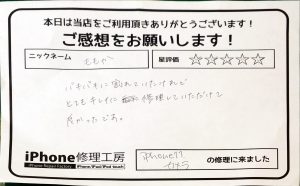 本日は当店をご利用頂きありがとうございます!
ご感想をお願いします!
ニックネーム
ももか
星評価 ☆☆☆☆☆
バキバキに割れていたけれど
とてもキレイに修理していただけて
良かったです。
iPhone修理工房
iPhone Repair Factory iPhone/iPad/iPod touch
の修理に来ました